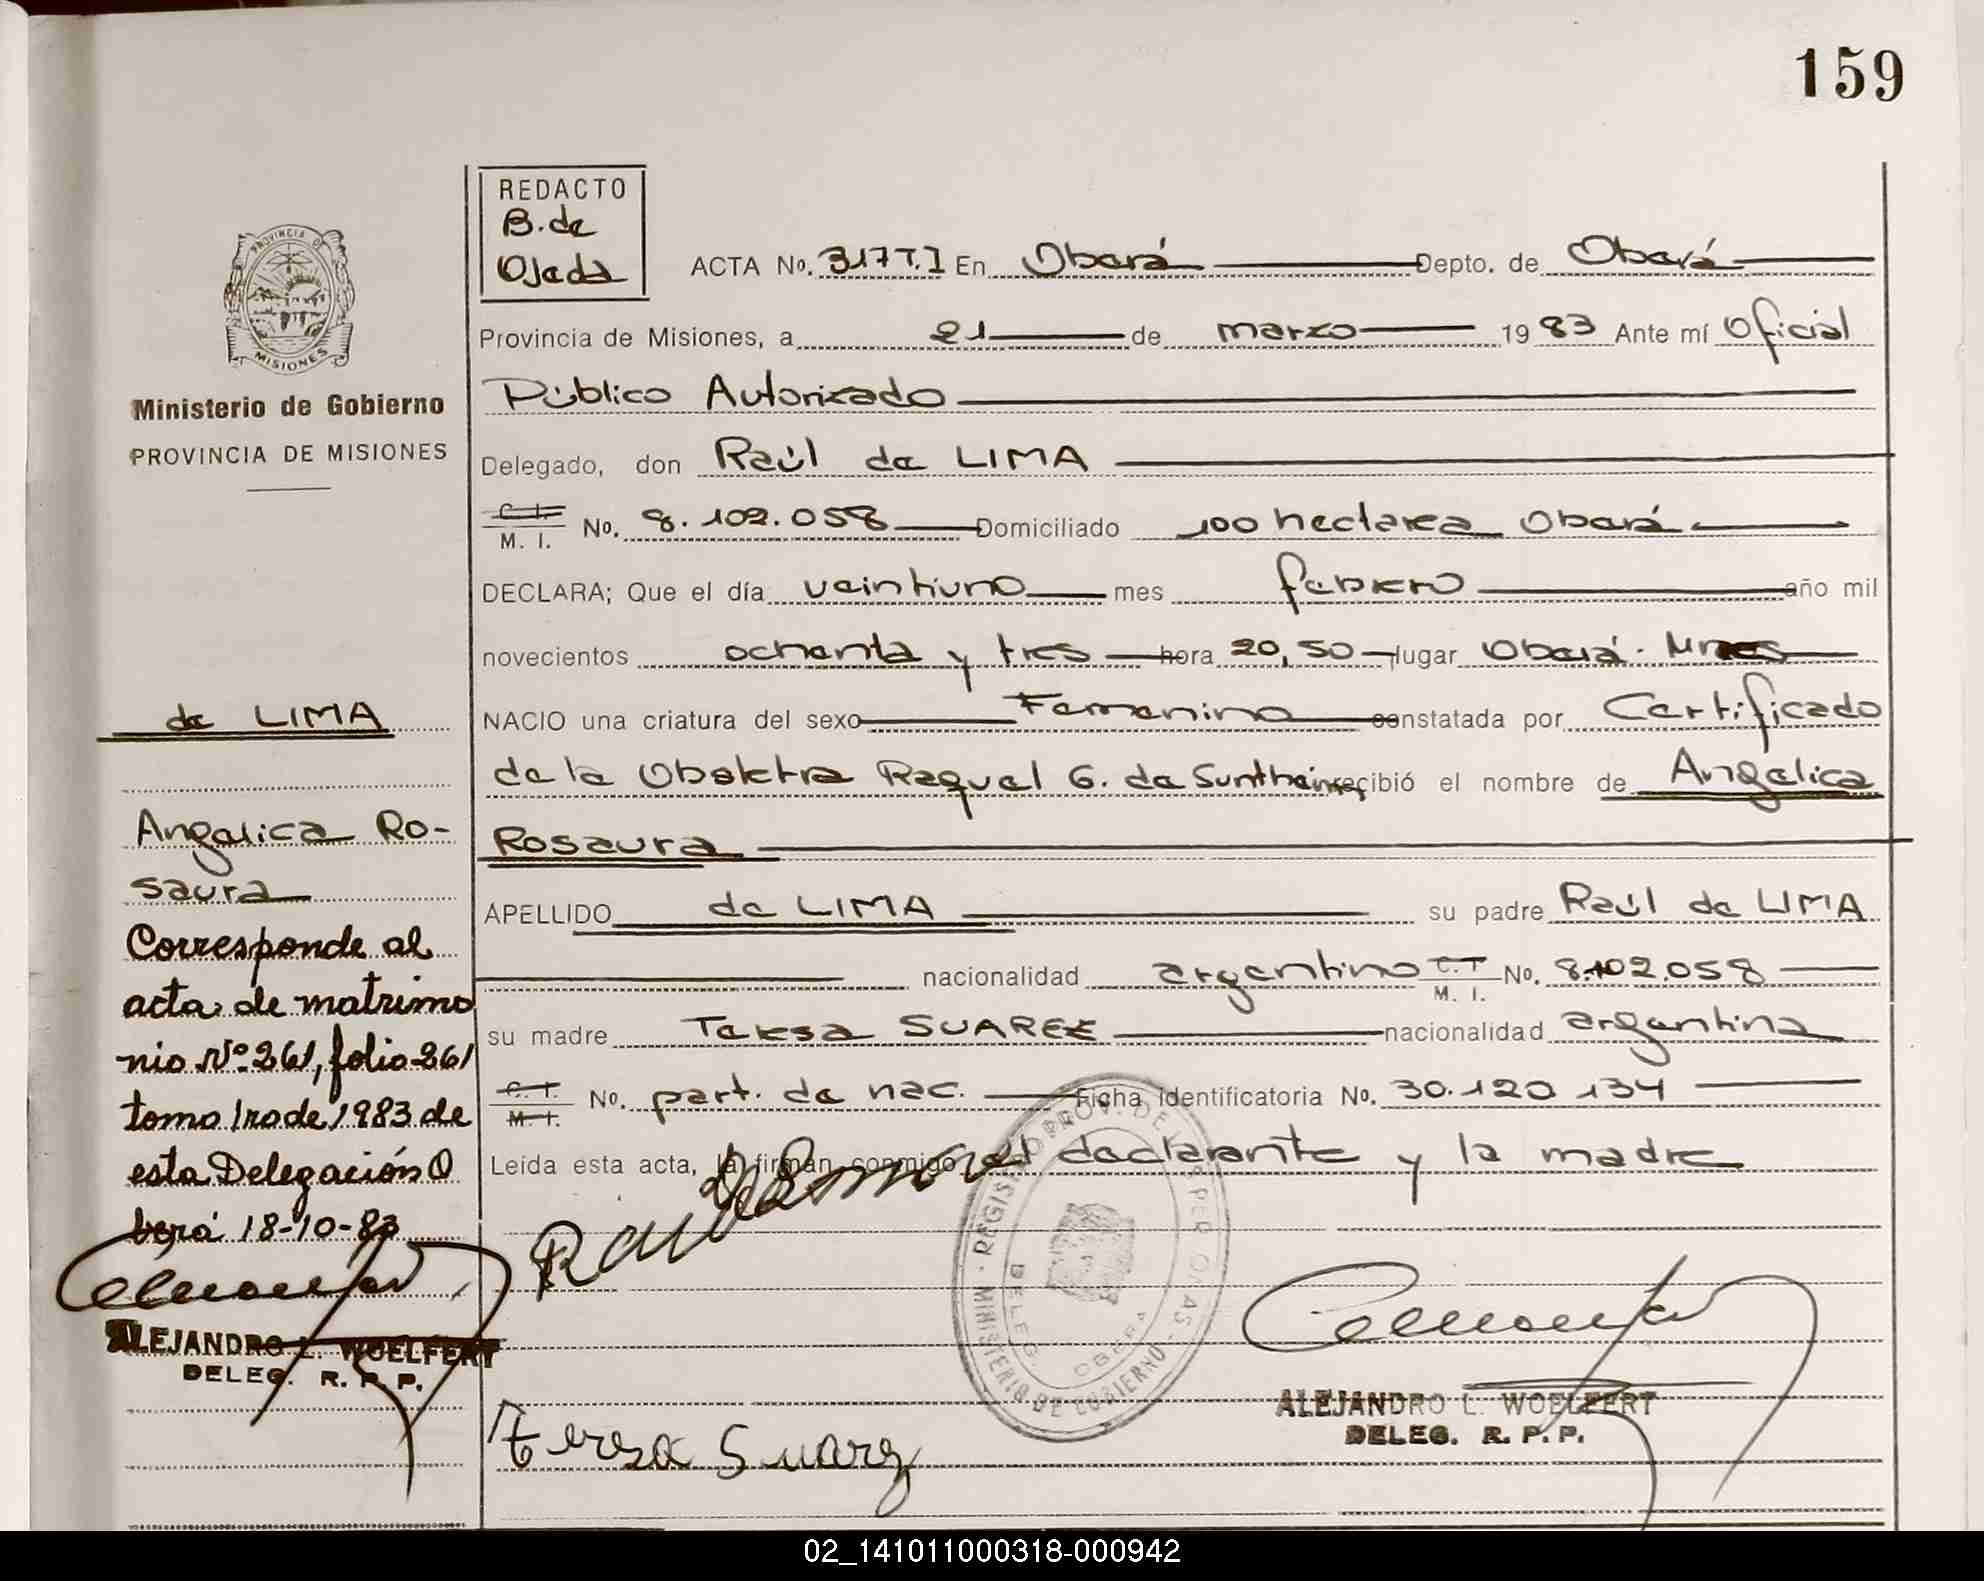 159
REDACTO
B. de
Ojeda
ACTA No. 317 T.I En Oberá Depto. de Oberá
Provincia de Misiones, a 21 de marzo 1983 Ante mí Oficial
Público Autorizado
Delegado, don Raúl de LIMA
C. I.
M. I. No. 8.102.058 Domiciliado 100 hectarea Oberá
DECLARA; Que el día veintiuno mes febrero año mil
novecientos ochenta y tres hora 20,50 lugar Oberá. Mnes
NACIO una criatura del sexo Femenino constatada por Certificado
de la Obstetra Raquel G. de recibió el nombre de Angelica
Rosaura
APELLIDO de LIMA su padre Raúl de LIMA
nacionalidad argentino C. I.
M. I. No. 8.102.058
su madre Teresa SUAREZ nacionalidad argentina
C. I.
M. I. No. part. de nac. Ficha Identificatoria No. 30.120.134
Leída esta acta, la firman conmigo el declarante y la madre
Teresa Suarez
ALEJANDRO L. WOELFERT
DELEG. R. P. P.
REGISTRO PROV. DE LAS PERSONAS
MINISTERIO DE GOBIERNO
DELEG. OBERA
PROVINCIA DE
MISIONES
Ministerio de Gobierno
PROVINCIA DE MISIONES
de LIMA
Angelica Ro-
saura
Corresponde al
acta de matrimo
nio Nº 261, folio 261
tomo 1ro de 1983 de
esta Delegación O
berá 18-10-83
ALEJANDRO L. WOELFERT
DELEG. R. P. P.
02_141011000318-000942